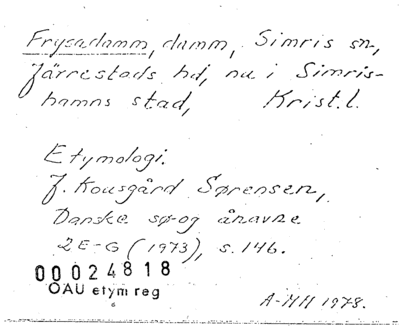 Frysadamm, damm, Simris sn,
Järrestads hd, nu i Simris-
hamns stad, Krist.l.
Etymologi.
J. Kousgård Sørensen,
Danske sø- og ånavne
2 E-G (1973), s. 146.
00024818
OAU etym reg
A-MH 1978.